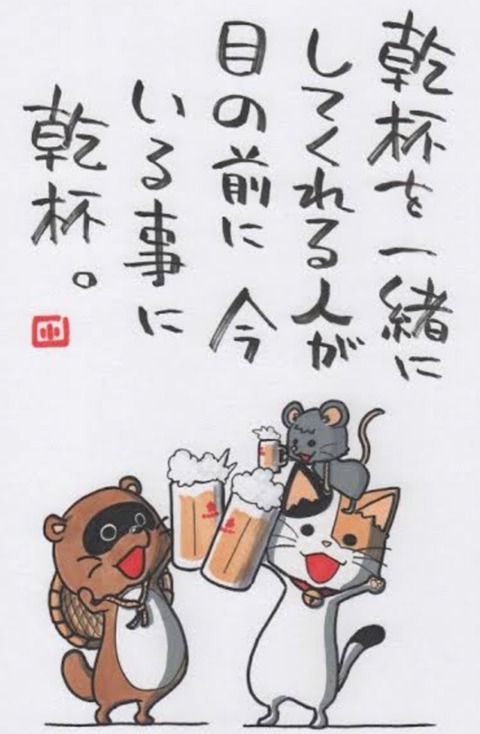 乾杯を一緒に
してくれる人が
目の前に 今
いる事に
乾杯。